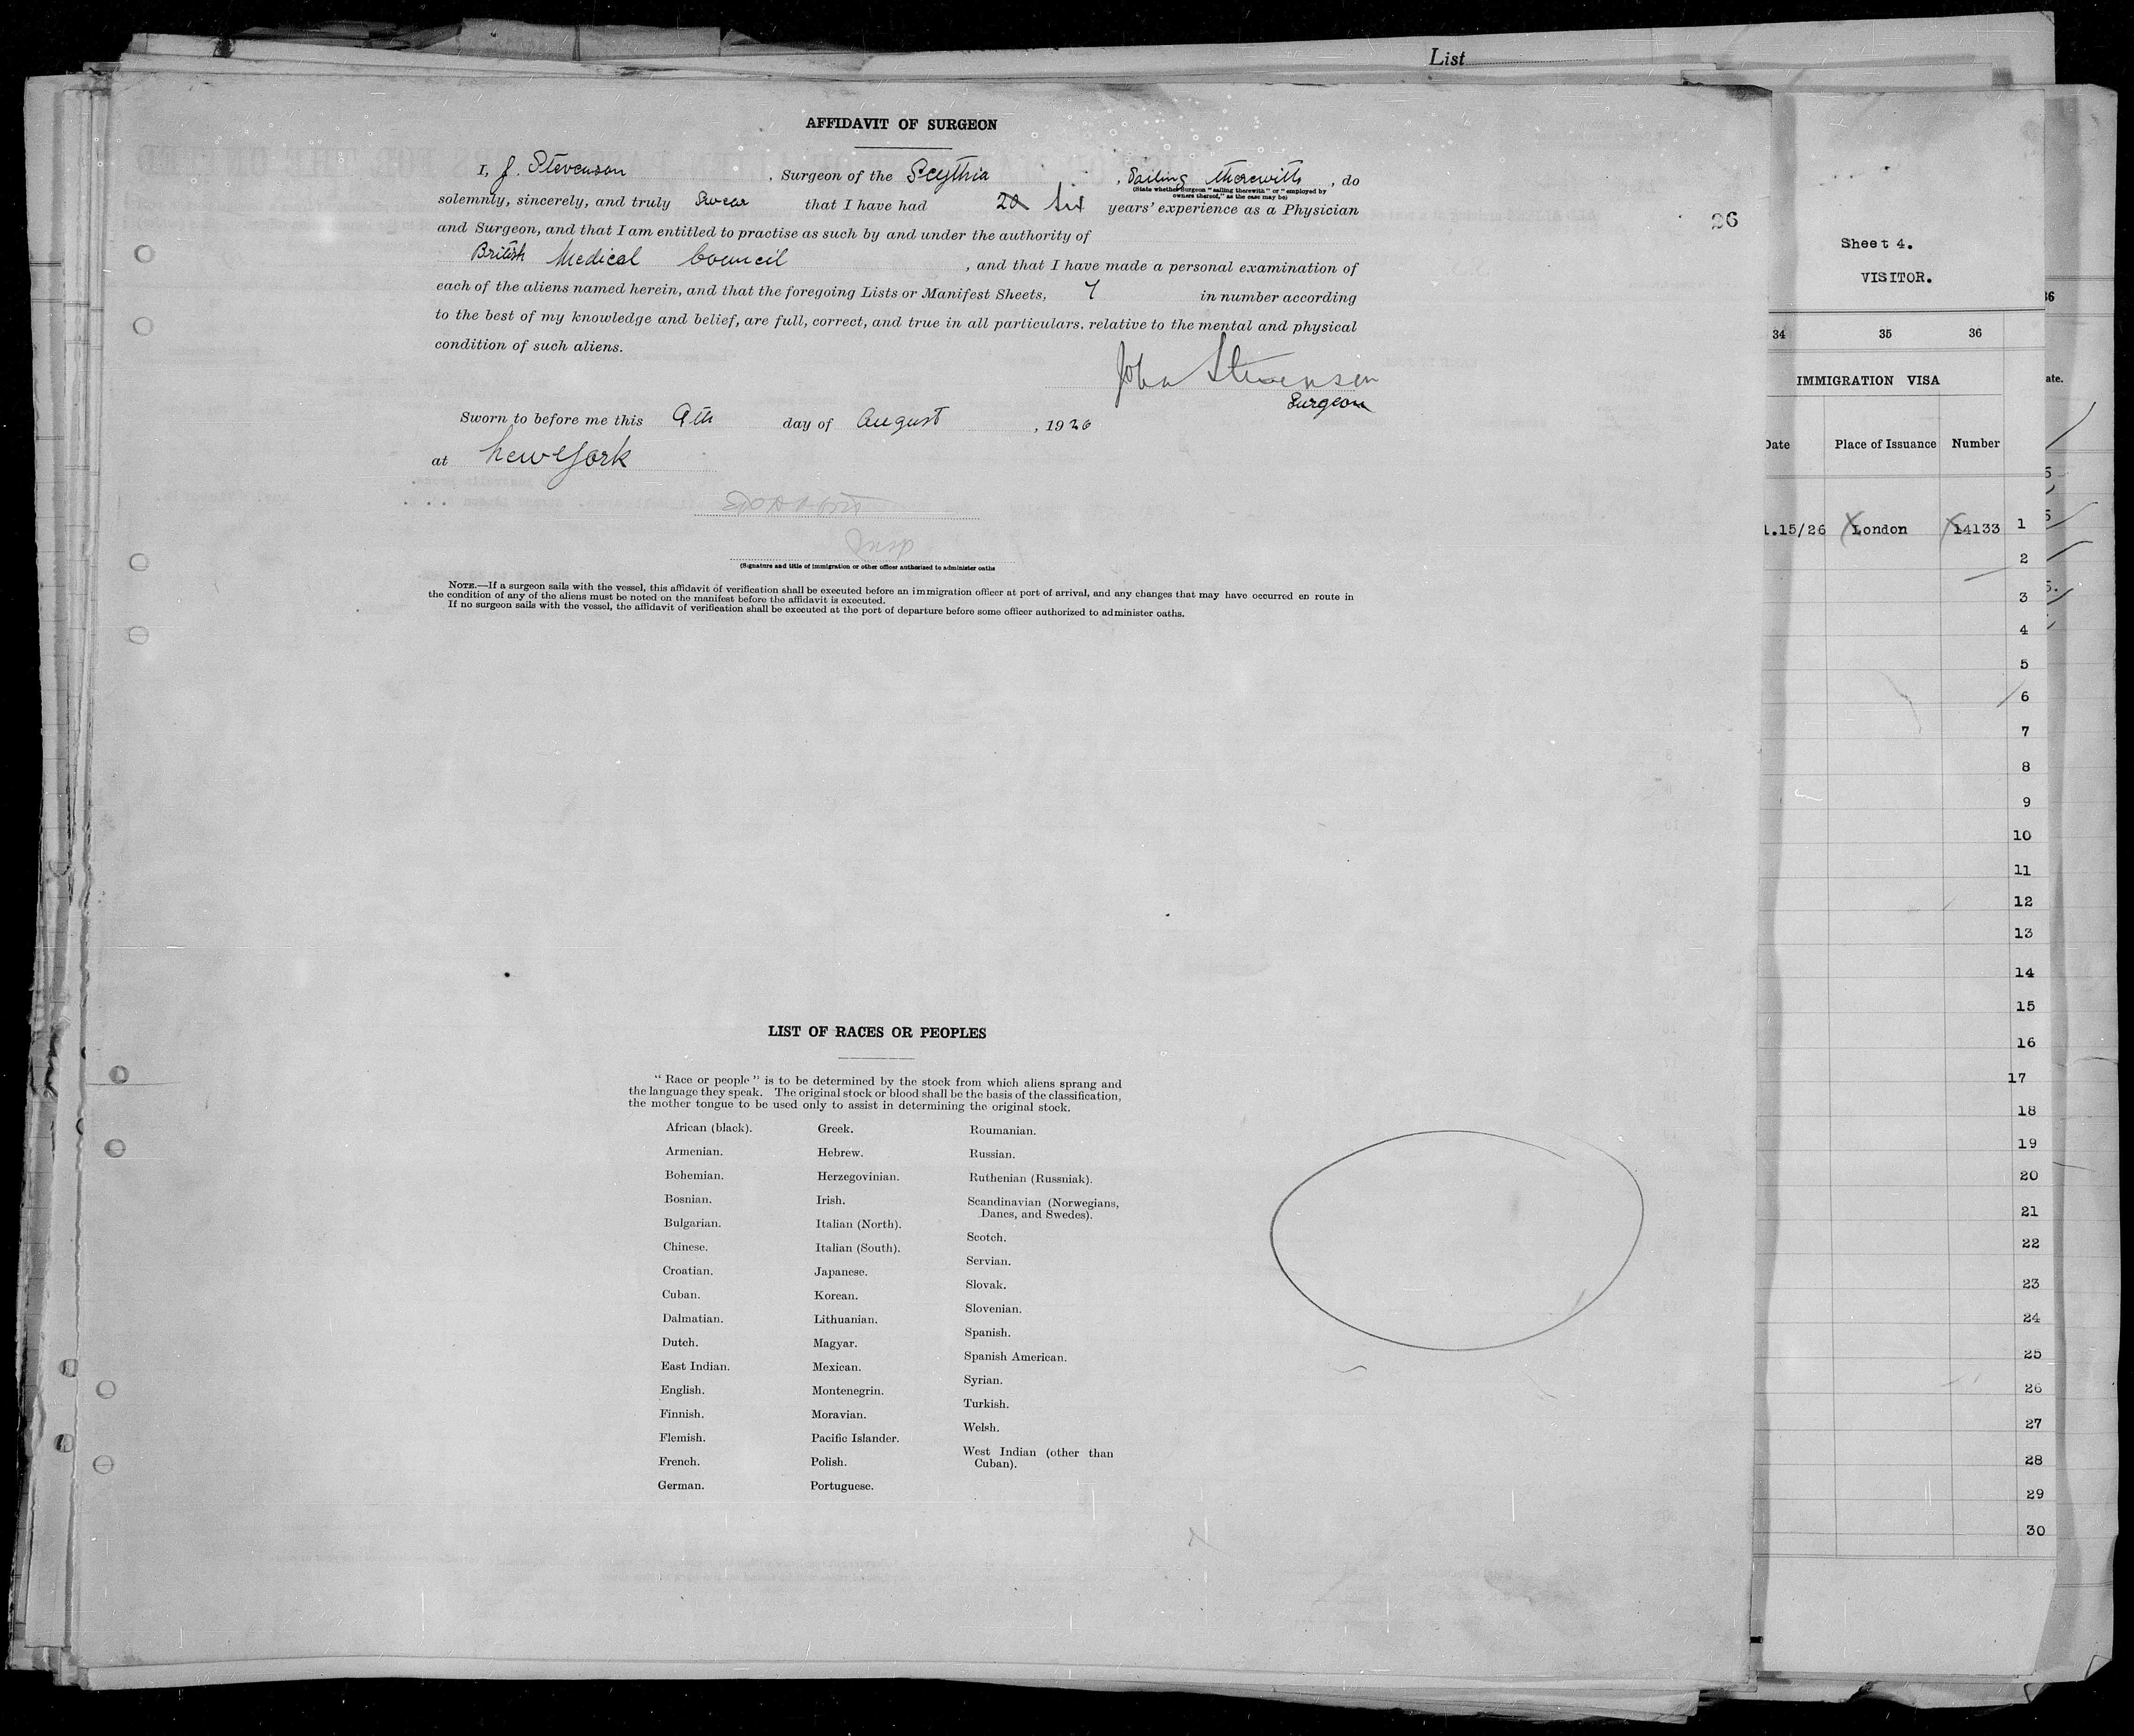 List
AFFIDAVIT OF SURGEON
I, J. Stevenson, Surgeon of the Scythia, Sailing therewith, do
(State whether Surgeon "sailing therewith" or "employed by
owners thereof," as the case may be)
solemnly, sincerely, and truly Swear that I have had 20 Six years' experience as a Physician
and Surgeon, and that I am entitled to practise as such by and under the authority of
British Medical Council, and that I have made a personal examination of
each of the aliens named herein, and that the foregoing Lists or Manifest Sheets, 7 in number according
to the best of my knowledge and belief, are full, correct, and true in all particulars, relative to the mental and physical
condition of such aliens.
John Stevenson
Surgeon
Sworn to before me this 9th day of August, 1926
at New York
Insp
(Signature and title of immigration or other officer authorized to administer oaths
NOTE.—If a surgeon sails with the vessel, this affidavit of verification shall be executed before an immigration officer at port of arrival, and any changes that may have occurred en route in
the condition of any of the aliens must be noted on the manifest before the affidavit is executed.
If no surgeon sails with the vessel, the affidavit of verification shall be executed at the port of departure before some officer authorized to administer oaths.
26
LIST OF RACES OR PEOPLES
"Race or people" is to be determined by the stock from which aliens sprang and
the language they speak. The original stock or blood shall be the basis of the classification,
the mother tongue to be used only to assist in determining the original stock.
African (black).
Armenian.
Bohemian.
Bosnian.
Bulgarian.
Chinese.
Croatian.
Cuban.
Dalmatian.
Dutch.
East Indian.
English.
Finnish.
Flemish.
French.
German.
Greek.
Hebrew.
Herzegovinian.
Irish.
Italian (North).
Italian (South).
Japanese.
Korean.
Lithuanian.
Magyar.
Mexican.
Montenegrin.
Moravian.
Pacific Islander.
Polish.
Portuguese.
Roumanian.
Russian.
Ruthenian (Russniak).
Scandinavian (Norwegians,
Danes, and Swedes).
Scotch.
Servian.
Slovak.
Slovenian.
Spanish.
Spanish American.
Syrian.
Turkish.
Welsh.
West Indian (other than
Cuban).
Sheet 4.
VISITOR.
34 35 36
IMMIGRATION VISA
Date Place of Issuance Number
.15/26 London 14133 1
2
3
4
5
6
7
8
9
10
11
12
13
14
15
16
17
18
19
20
21
22
23
24
25
26
27
28
29
30
36
ate.